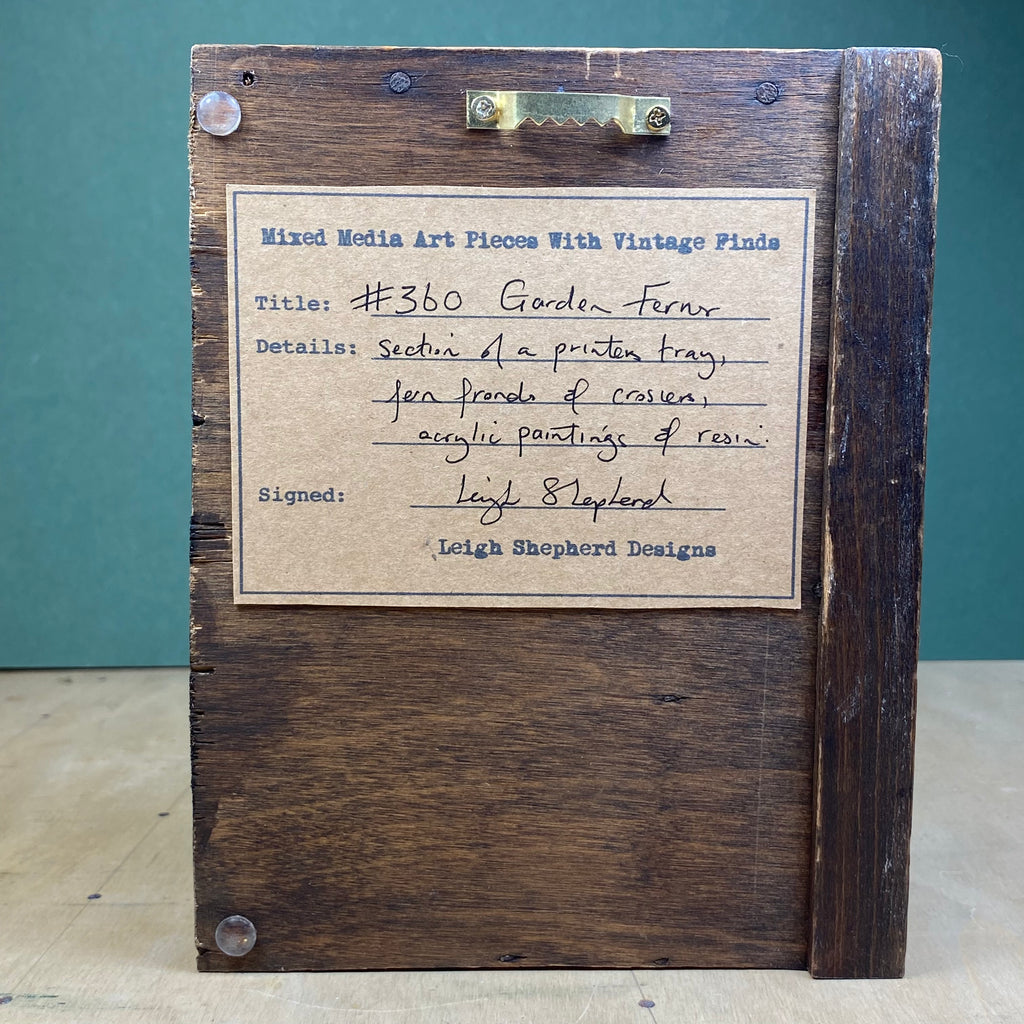 Mixed Media Art Pieces With Vintage Finds
Title: #360 Garden Ferns
Details: Section of a printers tray,
fern fronds & crosiers,
acrylic paintings & resin.
Signed: Leigh Shepherd
Leigh Shepherd Designs